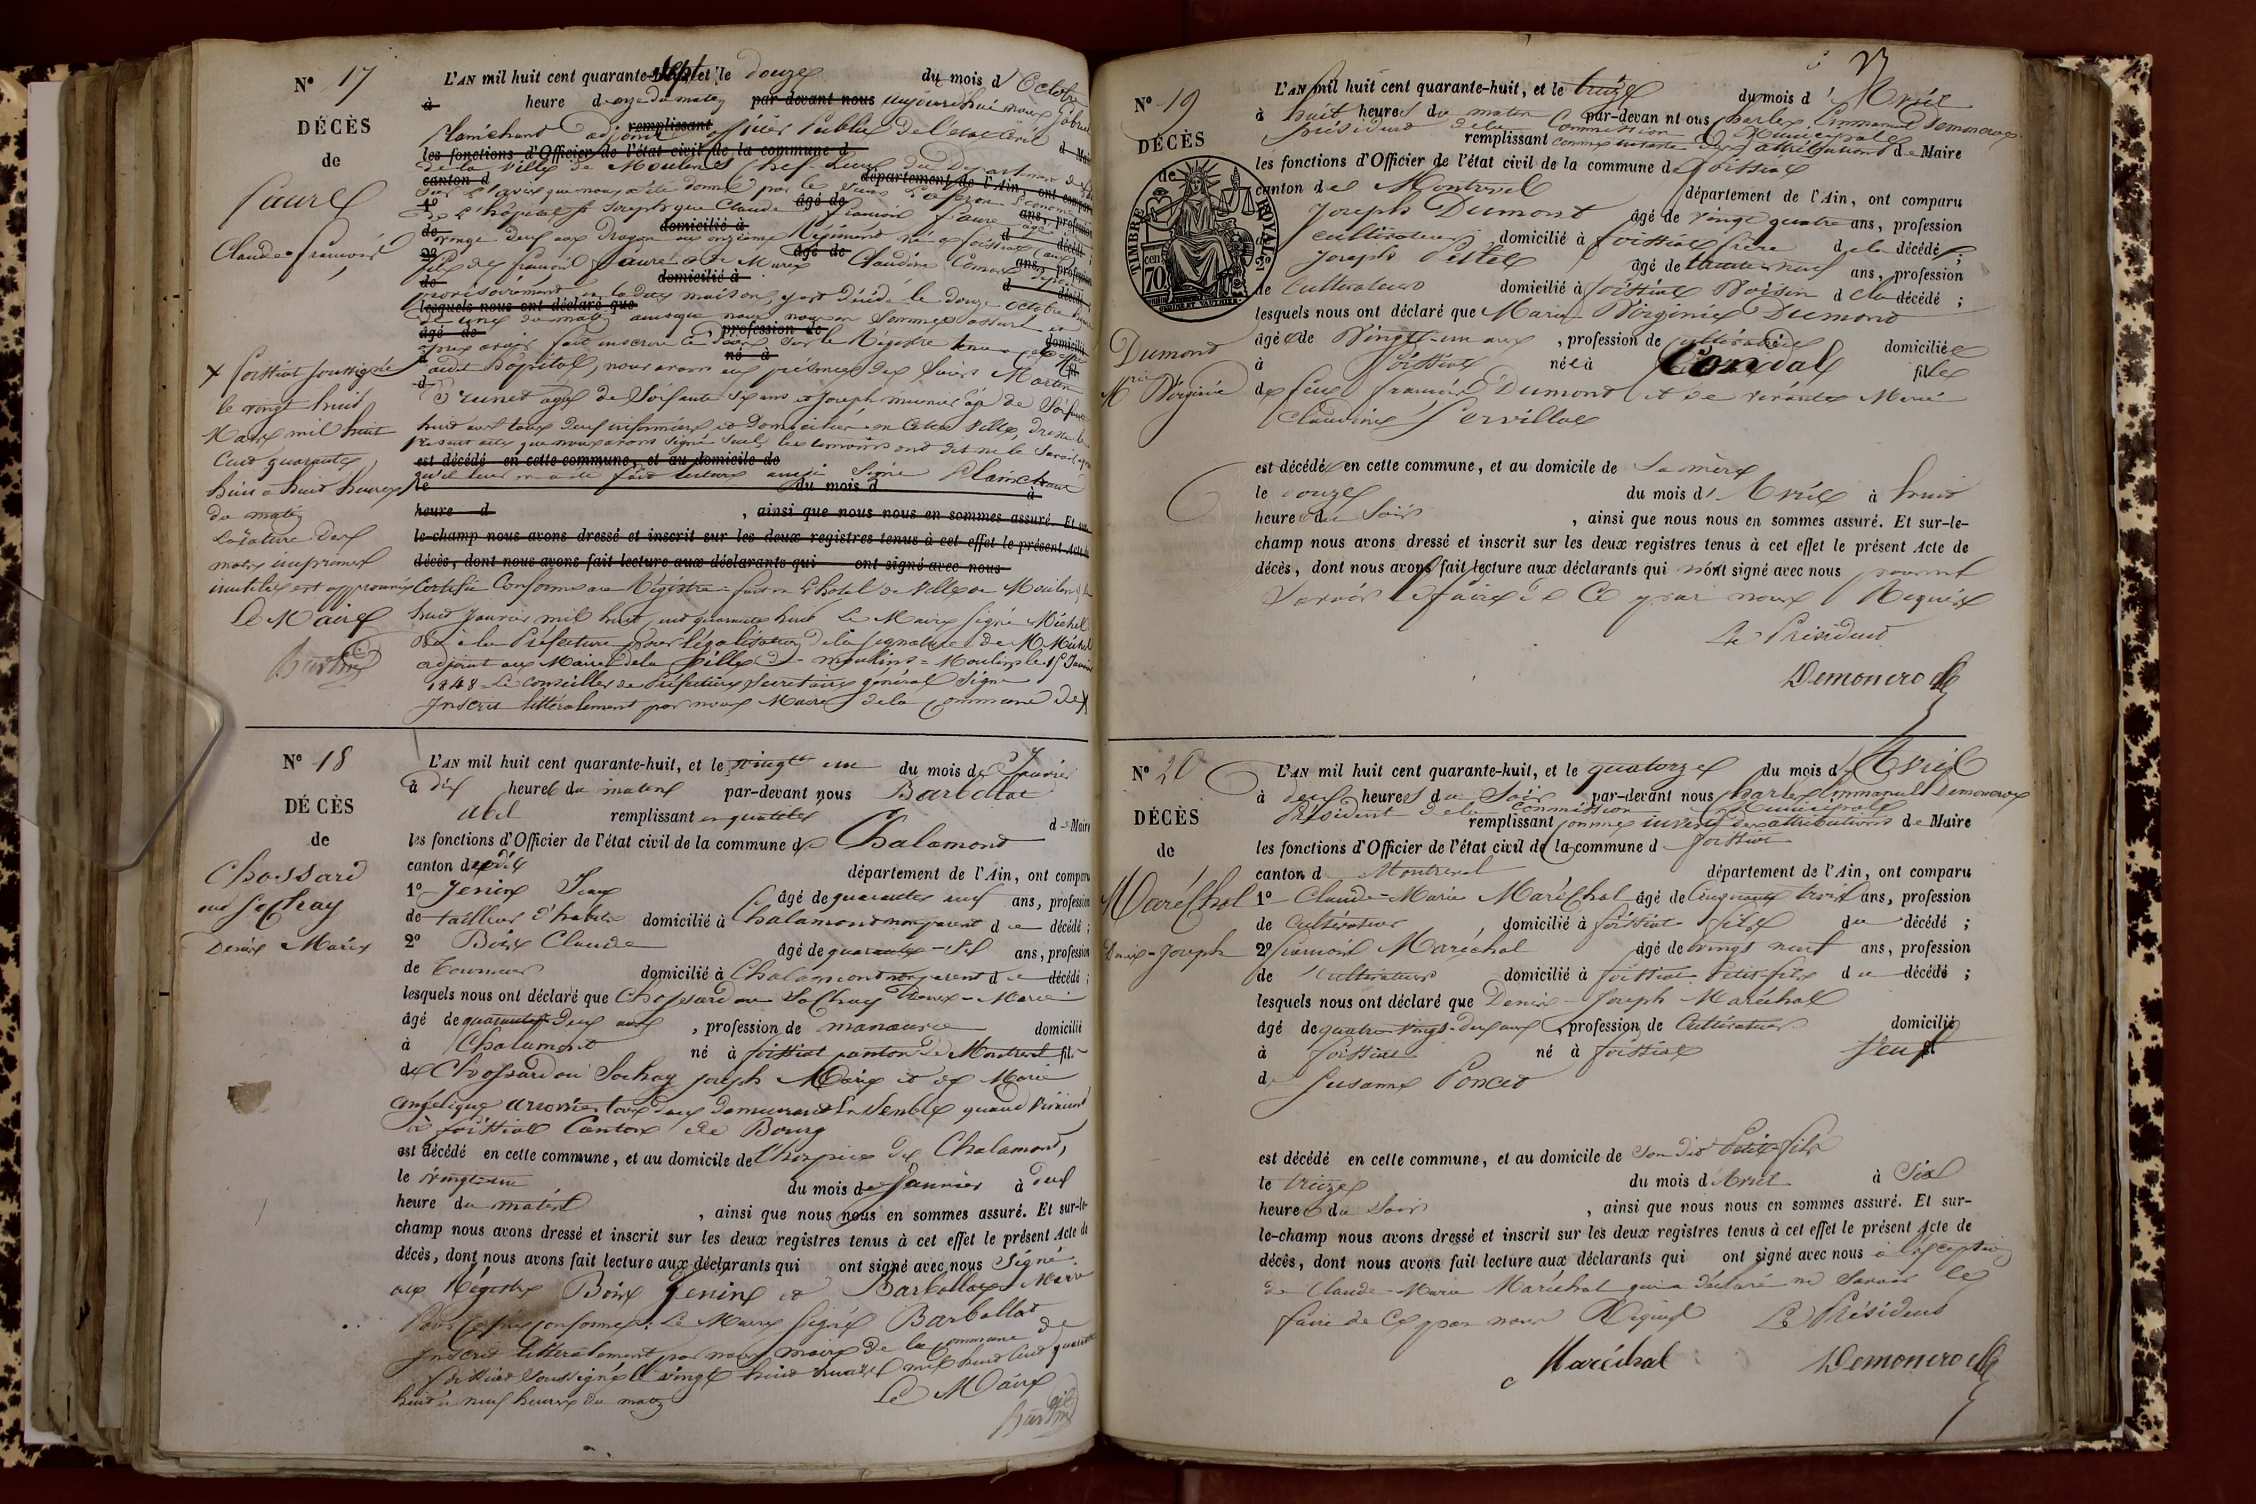 N° 17
DÉCÈS
de
Faure
Claude françois
L'AN mil huit cent quarante-sept et le douze du mois d'Octobre
à heure d onze du matin par-devant nous aujourd'hui nous
Plainchant adjoint remplissant officier Public de l'état Civil
les fonctions d'Officier de l'état civil de la commune d d Maire
de la ville de Moulins Chef lieu du Département de
canton d département de l'Ain, ont comparu
Sur l'avis que nous a été donné par le Sieur Econome
1° de l'hôpital St Joseph que Claude françois faure âgé de ans, profession
de vingt deux ans Dragon au onzième Régiment né à foissiat domicilié à d décédé
2° fils de françois faure et de Marie Claudine âgé de ans, profession
de domicilié à d décédé
provisoirement en la dite maison, y est décédé le douze octobre
lesquels nous ont déclaré que
du matin ainsi que nous nous en sommes assuré et
âgé de profession de domicilié
après avoir fait inscrire ce décès sur le Régistre tenu à cet effet
né à fil
audit hôpital, nous avons en présence des Sieurs Martin
d
Brunet agé de Soixante Six ans et Joseph meunier agé de Soixante
huit ans tous deux infirmiers et Domiciliés en Cette Ville, Dressé le
présent acte que nous avons Signé Seul, les témoins ont dit ne le Savoir
est décédé en cette commune, et au domicile de
lecture ainsi Signé Plainchant
le du mois d à
heure d , ainsi que nous nous en sommes assuré. Et sur-
le-champ nous avons dressé et inscrit sur les deux registres tenus à cet effet le présent Acte de
décès, dont nous avons fait lecture aux déclarants qui ont signé avec nous
Certifié Conforme au Régistre fait en l'hotel de Ville de Moulins le
huit Janvier mil huit cent quarante huit Le Maire Signé Michel
Vu à la Préfecture pour légalisation de la signature de M. Michel
adjoint au Maire de la Ville de moulins = Moulins le 15 Janvier
1848 Le Conseiller de Préfecture Secretaire général Signé
Inscrit littéralement par nous Maire de la Commune de x
x foissiat soussigné
le vingt huit
Mars mil huit
Cent quarante
huit à huit heures
du matin
La rature des
mots imprimés
inutiles est approuvée
Le Maire
N° 18
DÉCÈS
de
Chossard
ou Sochay
Denis Marie
L'AN mil huit cent quarante-huit, et le vingt un du mois de Janvier
à dix heures du matin par-devant nous Barbollat
Abel remplissant en qualité d e Maire
les fonctions d'Officier de l'état civil de la commune de Chalamont
canton de département de l'Ain, ont comparu
1° Jenin Jean âgé de quarante neuf ans, profession
de tailleur d'habits domicilié à Chalamont non parent d u décédé ;
2° Boix Claude âgé de quarante-six ans, profession
de Tourneur domicilié à Chalamont non parent d u décédé ;
lesquels nous ont déclaré que Chossard ou Sochay Denis-Marie
âgé de quarante deux ans , profession de manœuvre domicilié
à Chalamont né à foissiat canton de Montrevel fils
de Chossard ou Sochay Joseph Marie et de Marie
Angelique tous deux demeurant Ensemble quand vivaient
à foissiat Canton de Bourg
est décédé en cette commune, et au domicile de l'hospice de Chalamont,
le vingt-un du mois de Janvier à deux
heure du matin , ainsi que nous nous en sommes assuré. Et sur-le-
champ nous avons dressé et inscrit sur les deux registres tenus à cet effet le présent Acte de
décès, dont nous avons fait lecture aux déclarants qui ont signé avec nous Signé
aux Régistres Boix Jenin et Barbollat Maire
Pour Copie Conforme : Le Maire Signé Barbollat
Inscrit littéralement par nous maire de la commune de
foissiat soussigné le vingt huit mars mil huit cent quarante
huit à neuf heures du matin
Le Maire
N° 19
DÉCÈS
de
TIMBRE ROYAL
cen 70
Dumont
Mie Virginie
L'AN mil huit cent quarante-huit, et le treize du mois d'Avril
à huit heures du matin par-devant nous Charles Emmanuel Demoncroz
Président de la Commission Municipale
remplissant comme investi des attributions de Maire
les fonctions d'Officier de l'état civil de la commune de foissiat
canton de Montrevel département de l'Ain, ont comparu
Joseph Dumont âgé de vingt quatre ans, profession
cultivateur domicilié à foissiat frère de la décédée ;
2° Joseph Pestel âgé de trente-neuf ans, profession
de Cultivateur domicilié à foissiat Voisin de la décédé ;
lesquels nous ont déclaré que Marie Virginie Dumont
âgée de Vingt-un ans , profession de cultivatrice domiciliée
à foissiat née à Condal fille
de feu françois Dumont et de vivante Marie
Claudine Servillat
est décédée en cette commune, et au domicile de Sa mère
le douze du mois d'Avril à huit
heures du Soir , ainsi que nous nous en sommes assuré. Et sur-le-
champ nous avons dressé et inscrit sur les deux registres tenus à cet effet le présent Acte de
décès, dont nous avons fait lecture aux déclarants qui n'ont signé avec nous pour ne
Savoir le faire de Ce par nous Requis
Le Président
Demoncroz
N° 20
DÉCÈS
de
Maréchal
Denis-Joseph
L'AN mil huit cent quarante-huit, et le quatorze du mois d'Avril
à deux heures du Soir par-devant nous Charles Emmanuel Demoncroz
Président de la Commission Municipale
remplissant comme investi des attributions de Maire
les fonctions d'Officier de l'état civil de la commune d foissiat
canton d Montrevel département de l'Ain, ont comparu
1° Claude-Marie Maréchal âgé de Cinquante trois ans, profession
de Cultivateur domicilié à foissiat fils du décédé ;
2° françois Maréchal âgé de vingt neuf ans, profession
de Cultivateur domicilié à foissiat Petit-fils du décédé ;
lesquels nous ont déclaré que Denis-Joseph Maréchal
âgé de quatre-vingt-deux ans , profession de Cultivateur domicilié
à foissiat né à foissiat Veuf
de Susanne Poncet
est décédé en cette commune, et au domicile de son dit Petit-fils
le treize du mois d'Avril à Six
heures du Soir , ainsi que nous nous en sommes assuré. Et sur-
le-champ nous avons dressé et inscrit sur les deux registres tenus à cet effet le présent Acte de
décès, dont nous avons fait lecture aux déclarants qui ont signé avec nous à l'exception
de Claude-Marie Maréchal qui a déclaré ne Savoir le
faire de Ce par nous Requis Le Président
Maréchal Demoncroz